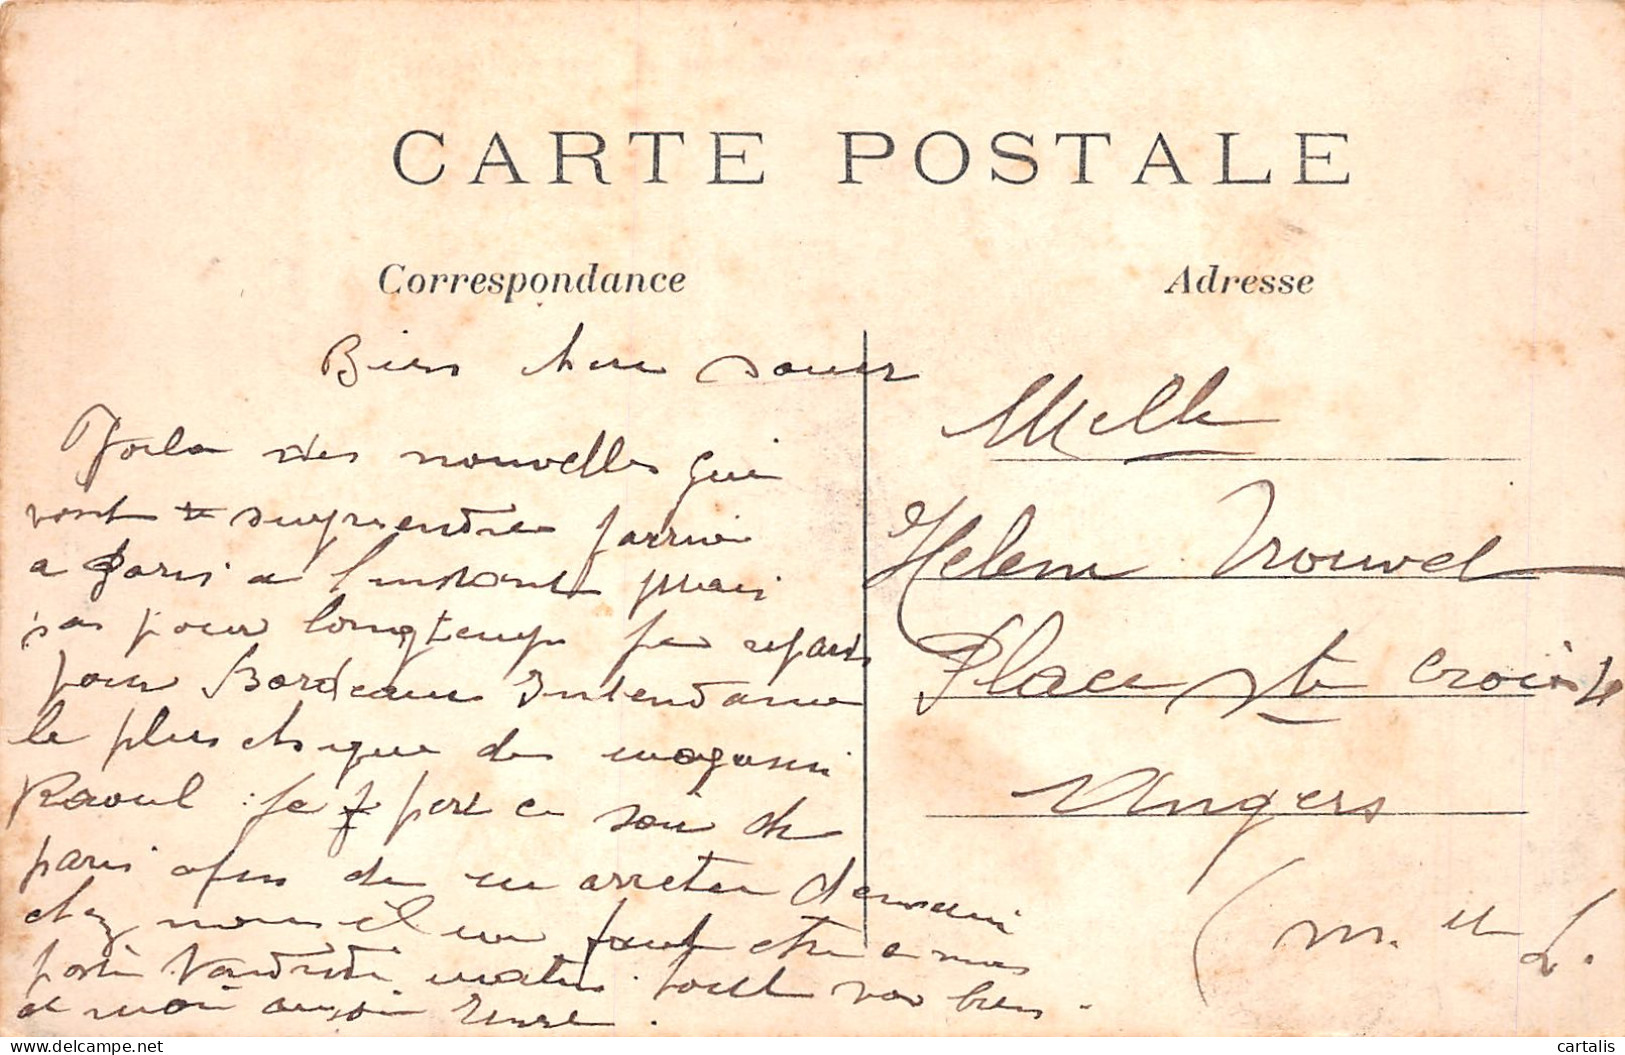 CARTE POSTALE
Correspondance
Adresse
Bien chere soeur
Voila des nouvelles qui
vont te surprendre jarrive
a Paris a l'instant mais
pas pour longtemps je repart
pour Bordeaux Intendance
le plus chique des magasin
Raoul je part ce soir de
paris afin de m arreter demain
chez nous il me faut etre a mon
poste Vendredi matin tout va bien.
et moi aussi
Melle
Helene Nouvel
Place Ste Croix
Angers
(M. et L.
cartalis